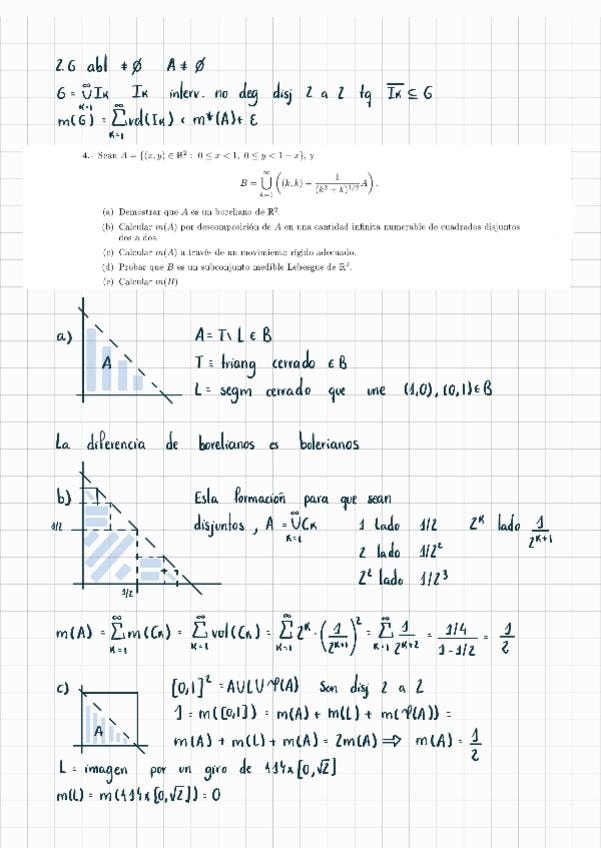 2.6 abl ≠ ∅ A ≠ ∅
G = ∪ Iₖ Iₖ interv. no deg disj 2 a 2 tq Īₖ ⊆ G
m(G) = Σ vol(Iₖ) < m*(A) + ε
4.- Sean A = {(x, y) ∈ ℝ² : 0 ≤ x < 1, 0 ≤ y < 1 − x}, y
B = ∪ ((k, k) + 1/(k² + k)^{1/2} A).
(a) Demostrar que A es un boreliano de ℝ².
(b) Calcular m(A) por descomposición de A en una cantidad infinita numerable de cuadrados disjuntos
dos a dos.
(c) Calcular m(A) a través de un movimiento rígido adecuado.
(d) Probar que B es un subconjunto medible Lebesgue de ℝ².
(e) Calcular m(B)
a) A = T \ L ∈ B
A T ≡ triang cerrado ∈ B
L = segm cerrado que une (1,0), (0,1) ∈ B
La diferencia de borelianos es bolerianos
b) Esla formación para que sean
1/2 disjuntos, A = ∪ Cₖ 1 lado 1/2 2^k lado 1/2^{k+1}
2 lado 1/2²
1/2 2² lado 1/2³
m(A) = Σ m(Cₖ) = Σ vol(Cₖ) = Σ 2^k · (1/2^{k+1})² = Σ 1/2^{k+2} = (1/4)/(1-1/2) = 1/2
c) [0,1]² = A∪L∪Ψ(A) son disj 2 a 2
1 = m([0,1]) = m(A) + m(L) + m(Ψ(A)) =
A m(A) + m(L) + m(A) = 2m(A) ⟹ m(A) = 1/2
L = imagen por un giro de {1}x[0,√2]
m(L) = m({1}x[0,√2]) = 0